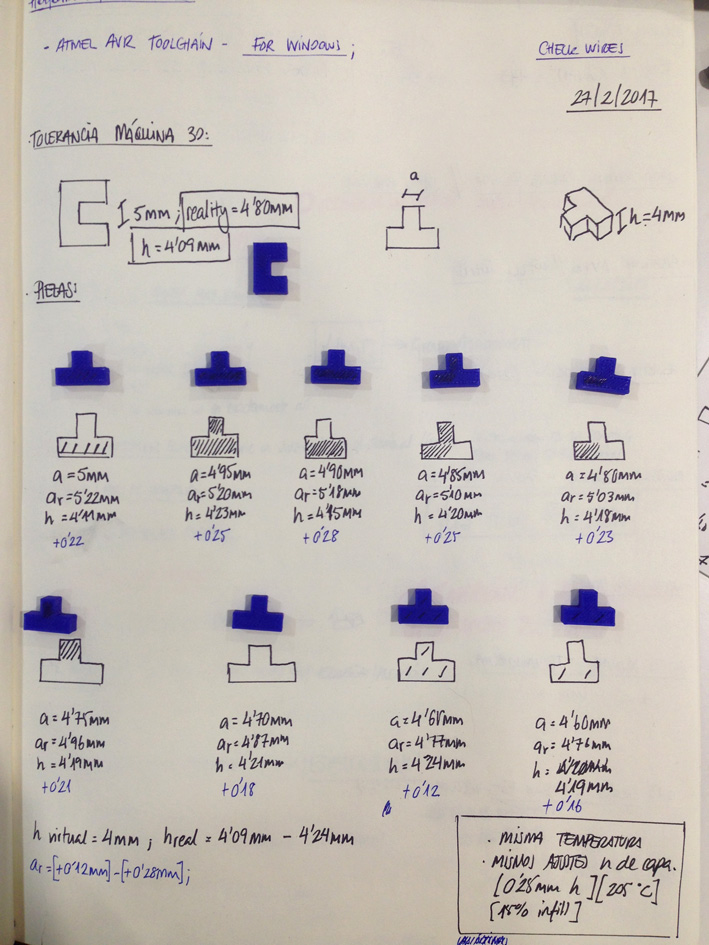 - ATMEL AVR TOOLCHAIN - FOR WINDOWS;
CHECK WIRES
27/2/2017
· TOLERANCIA MÁQUINA 3D:
5mm; reality = 4'80mm
h = 4'09mm
a
h = 4mm
· PIEZAS:
a = 5mm
ar = 5'22mm
h = 4'11mm
+0'22
a = 4'95mm
ar = 5'20mm
h = 4'23mm
+0'25
a = 4'90mm
ar = 5'18mm
h = 4'15mm
+0'28
a = 4'85mm
ar = 5'10mm
h = 4'20mm
+0'25
a = 4'80mm
ar = 5'03mm
h = 4'18mm
+0'23
a = 4'75mm
ar = 4'96mm
h = 4'19mm
+0'21
a = 4'70mm
ar = 4'87mm
h = 4'21mm
+0'18
a = 4'65mm
ar = 4'77mm
h = 4'24mm
+0'12
a = 4'60mm
ar = 4'76mm
h =
4'19mm
+0'16
h virtual = 4mm ; h real = 4'09mm - 4'24mm
ar = [+0'12mm] - [+0'28mm];
· MISMA TEMPERATURA
· MISMOS AJUSTES n de capa.
[0'25mm h] [205 °C]
[15% infill]